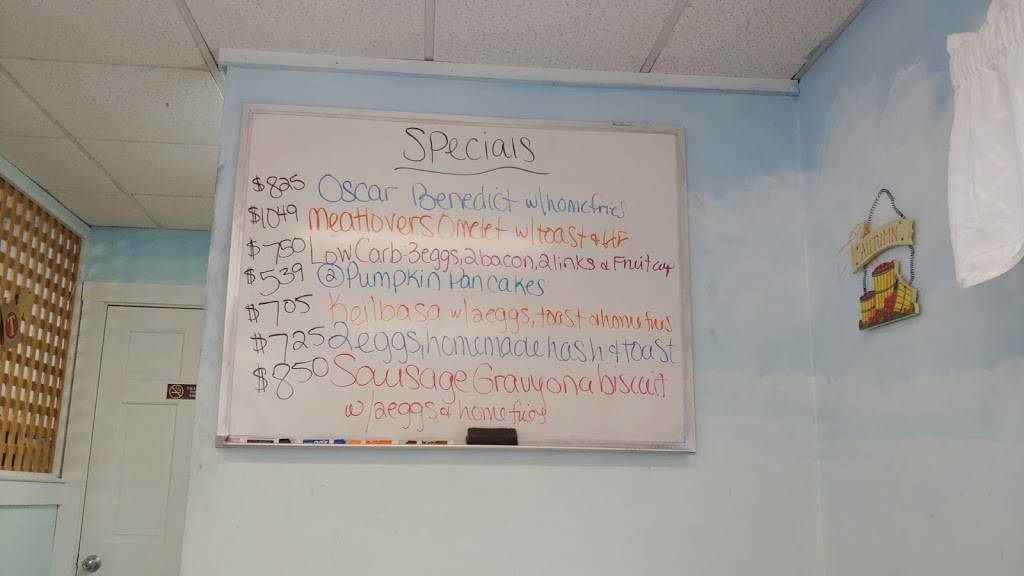 Specials
$825 Oscar Benedict w/homefries
$1049 Meatlovers Omelet w/toast & HF
$750 Low Carb-3eggs, 2bacon, 2links & Fruit cup
$539 ② Pumpkin Pancakes
$705 Keilbasa w/2eggs, toast & homefries
$725 2eggs, homemade hash & toast
$850 Sausage Gravy on a biscuit
w/2eggs & homefries
AUTUMN